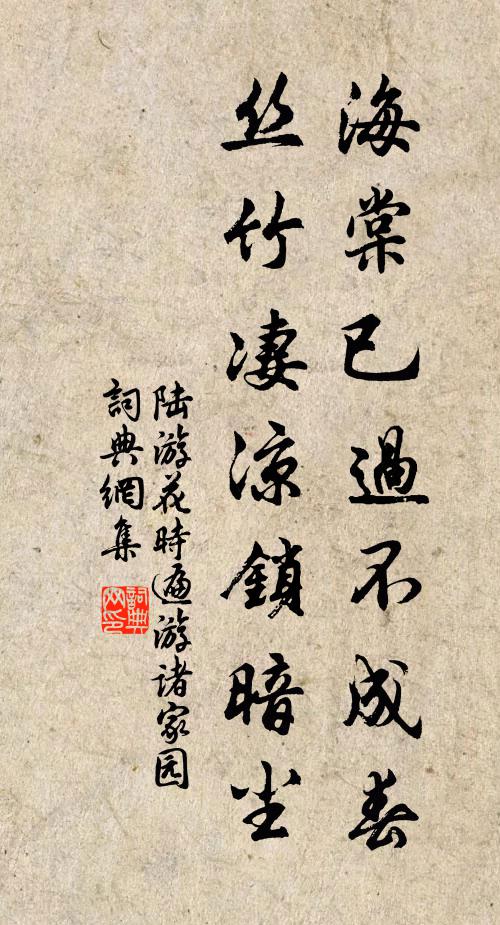 海棠已過不成春
丝竹凄涼鎖暗尘
陆游花時遍游诸家园
詞典網集
詞典网印